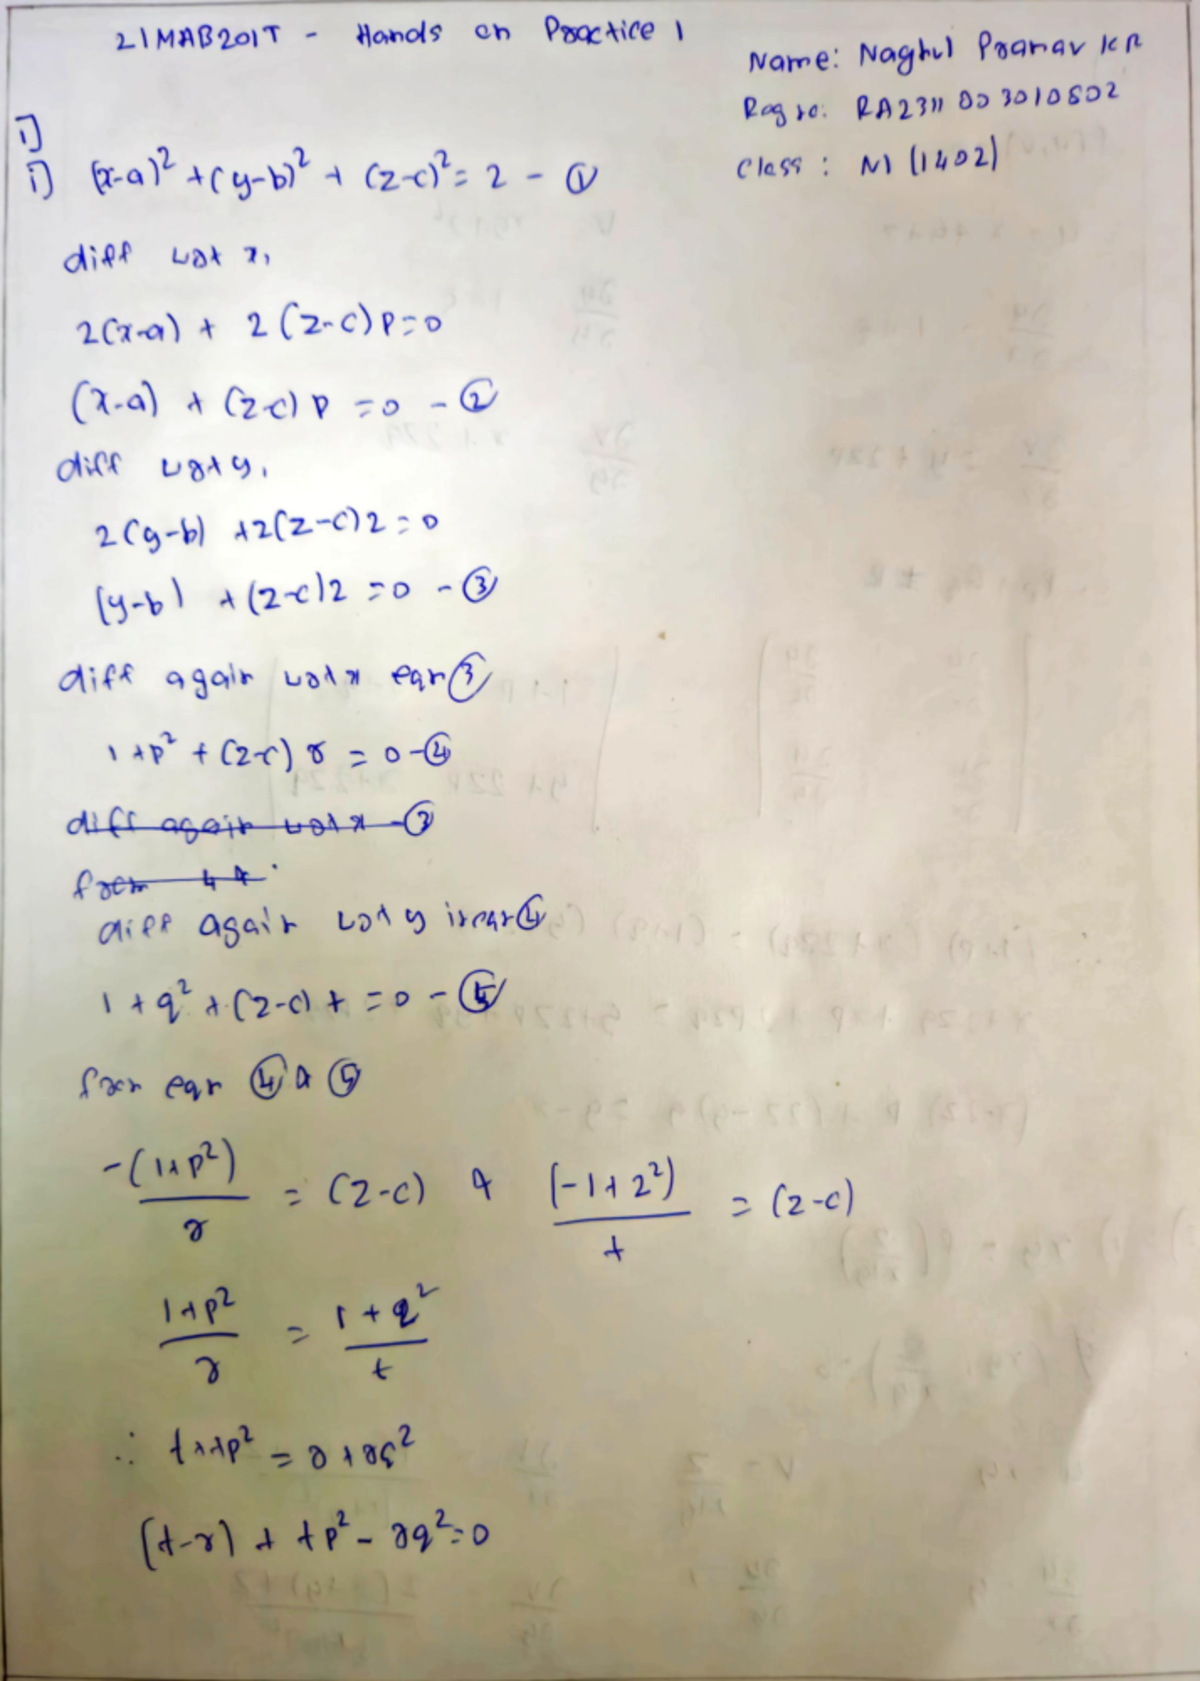 21MAB201T - Hands on Practice 1
Name: Naghul Pranav KR
Reg no: RA2311003010802
Class: N1 (1402)
1]
i] (x-a)² + (y-b)² + (z-c)² = 2 - ①
diff wrt x,
2(x-a) + 2(z-c)p=0
(x-a) + (z-c)p = 0 - ②
diff wrt y,
2(y-b) +2(z-c)2=0
(y-b) + (z-c)2 = 0 - ③
diff again wrt x eqn ③
1+p² + (z-c) r = 0 - ④
diff again wrt x - ③
from 4 &
diff again wrt y in eqn ④
1 + q² + (z-c) t = 0 - ⑤
from eqn ④ & ⑤
-(1+p²)/r = (z-c) & (-1+2²)/t = (z-c)
(1+p²)/r = (1+q²)/t
∴ t+tp² = r+rq²
(t-r) + tp² - rq²=0